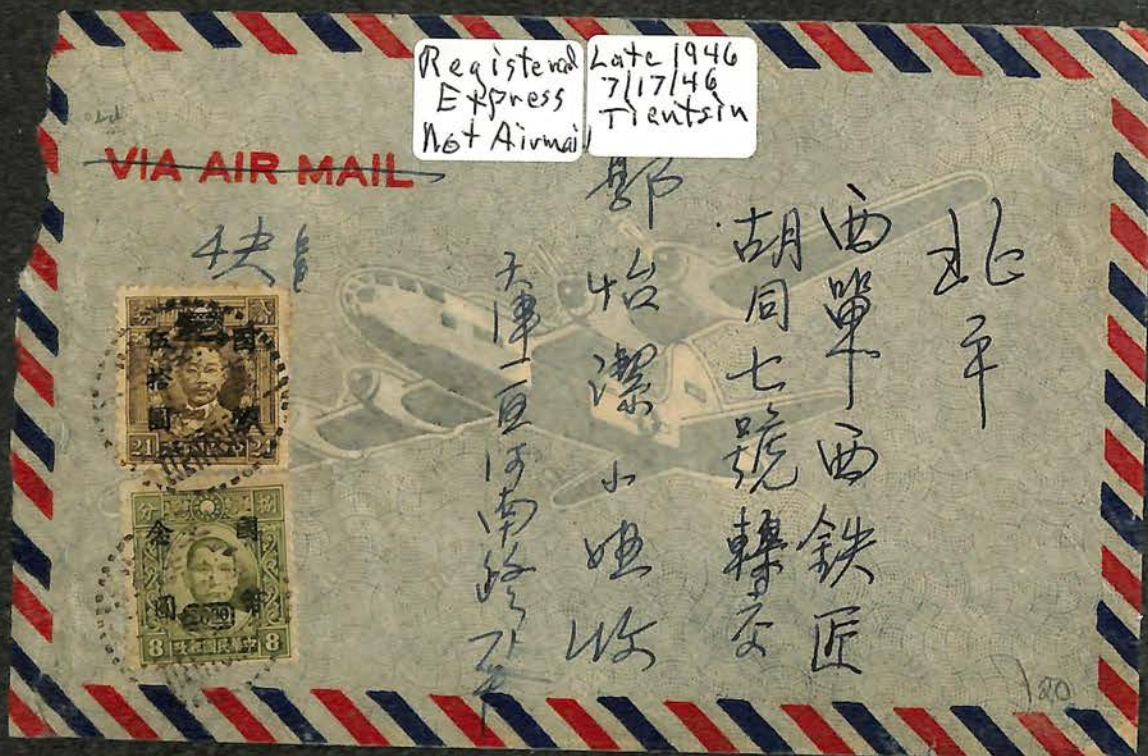 Registered
Express
Not Airmail
Late 1946
7/17/46
Tientsin
VIA AIR MAIL
快
北平
西單西鉄匠
胡同七號轉交
郭怡潔小姐收
天津一區河南路
國幣
伍拾圓
21 21
分 捌
國幣
念圓
20 00
8 中華民國郵政 8
120